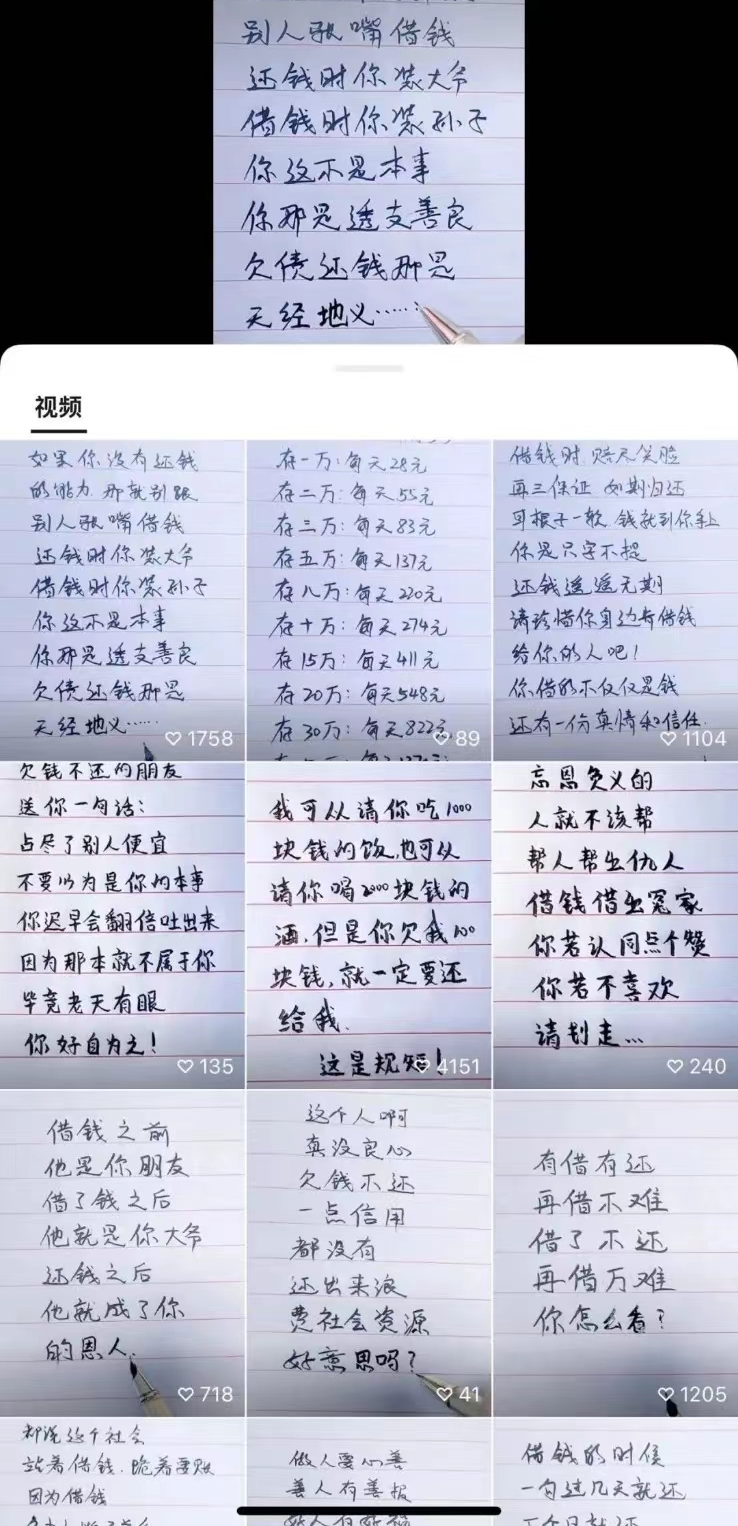 别人张嘴借钱
还钱时你装大爷
借钱时你装孙子
你这不是本事
你那是透支善良
欠债还钱那是
天经地义……
视频
如果你没有还钱
的能力,那就别跟
别人张嘴借钱
还钱时你装大爷
借钱时你装孙子
你这不是本事
你那是透支善良
欠债还钱那是
天经地义……
1758
存一万:每天28元
存二万:每天55元
存三万:每天83元
存五万:每天137元
存八万:每天220元
存十万:每天274元
存15万:每天411元
存20万:每天548元
存30万:每天822元
89
借钱时,赔尽笑脸
再三保证 如期归还
耳根子一软,钱就到你手上
你是只字不提
还钱遥遥无期
请珍惜你身边每借钱
给你的人吧!
你借的不仅仅是钱
还有一份真情和信任.
1104
欠钱不还的朋友
送你一句话:
占尽了别人便宜
不要以为是你的本事
你迟早会翻倍吐出来
因为那本就不属于你
毕竟老天有眼
你好自为之!
135
我可以请你吃1000
块钱的饭,也可以
请你喝2000块钱的
酒,但是你欠我100
块钱,就一定要还
给我.
这是规矩!
4151
忘恩负义的
人就不该帮
帮人帮出仇人
借钱借出冤家
你若认同点个赞
你若不喜欢
请划走...
240
借钱之前
他是你朋友
借了钱之后
他就是你大爷
还钱之后
他就成了你
的恩人.
718
这个人啊
真没良心
欠钱不还
一点信用
都没有
还出来浪
费社会资源
好意思吗?
41
有借有还
再借不难
借了不还
再借万难
你怎么看?
1205
却说这个社会
站着借钱.跪着要账
因为借钱
做人要心善
善人有善报
借钱的时候
一句过几天就还